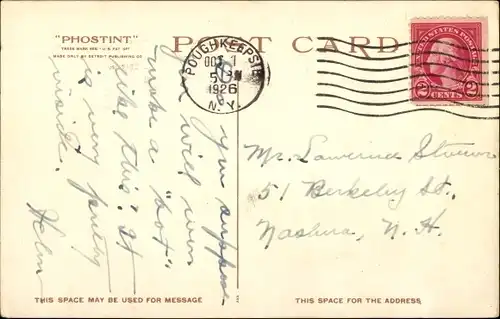 "PHOSTINT"
TRADE MARK REG. U.S. PAT. OFF.
MADE ONLY BY DETROIT PUBLISHING CO.
POST CARD
POUGHKEEPSIE
OCT 1
5 PM
1926
N.Y.
UNITED STATES POSTAGE
2 CENTS 2
Do you suppose
you will ever
make a "hot"
like this? It
is very pretty
inside.
Helen
Mr. Lawrence
51 Berkeley St.,
Nashua, N. H.
THIS SPACE MAY BE USED FOR MESSAGE
THIS SPACE FOR THE ADDRESS